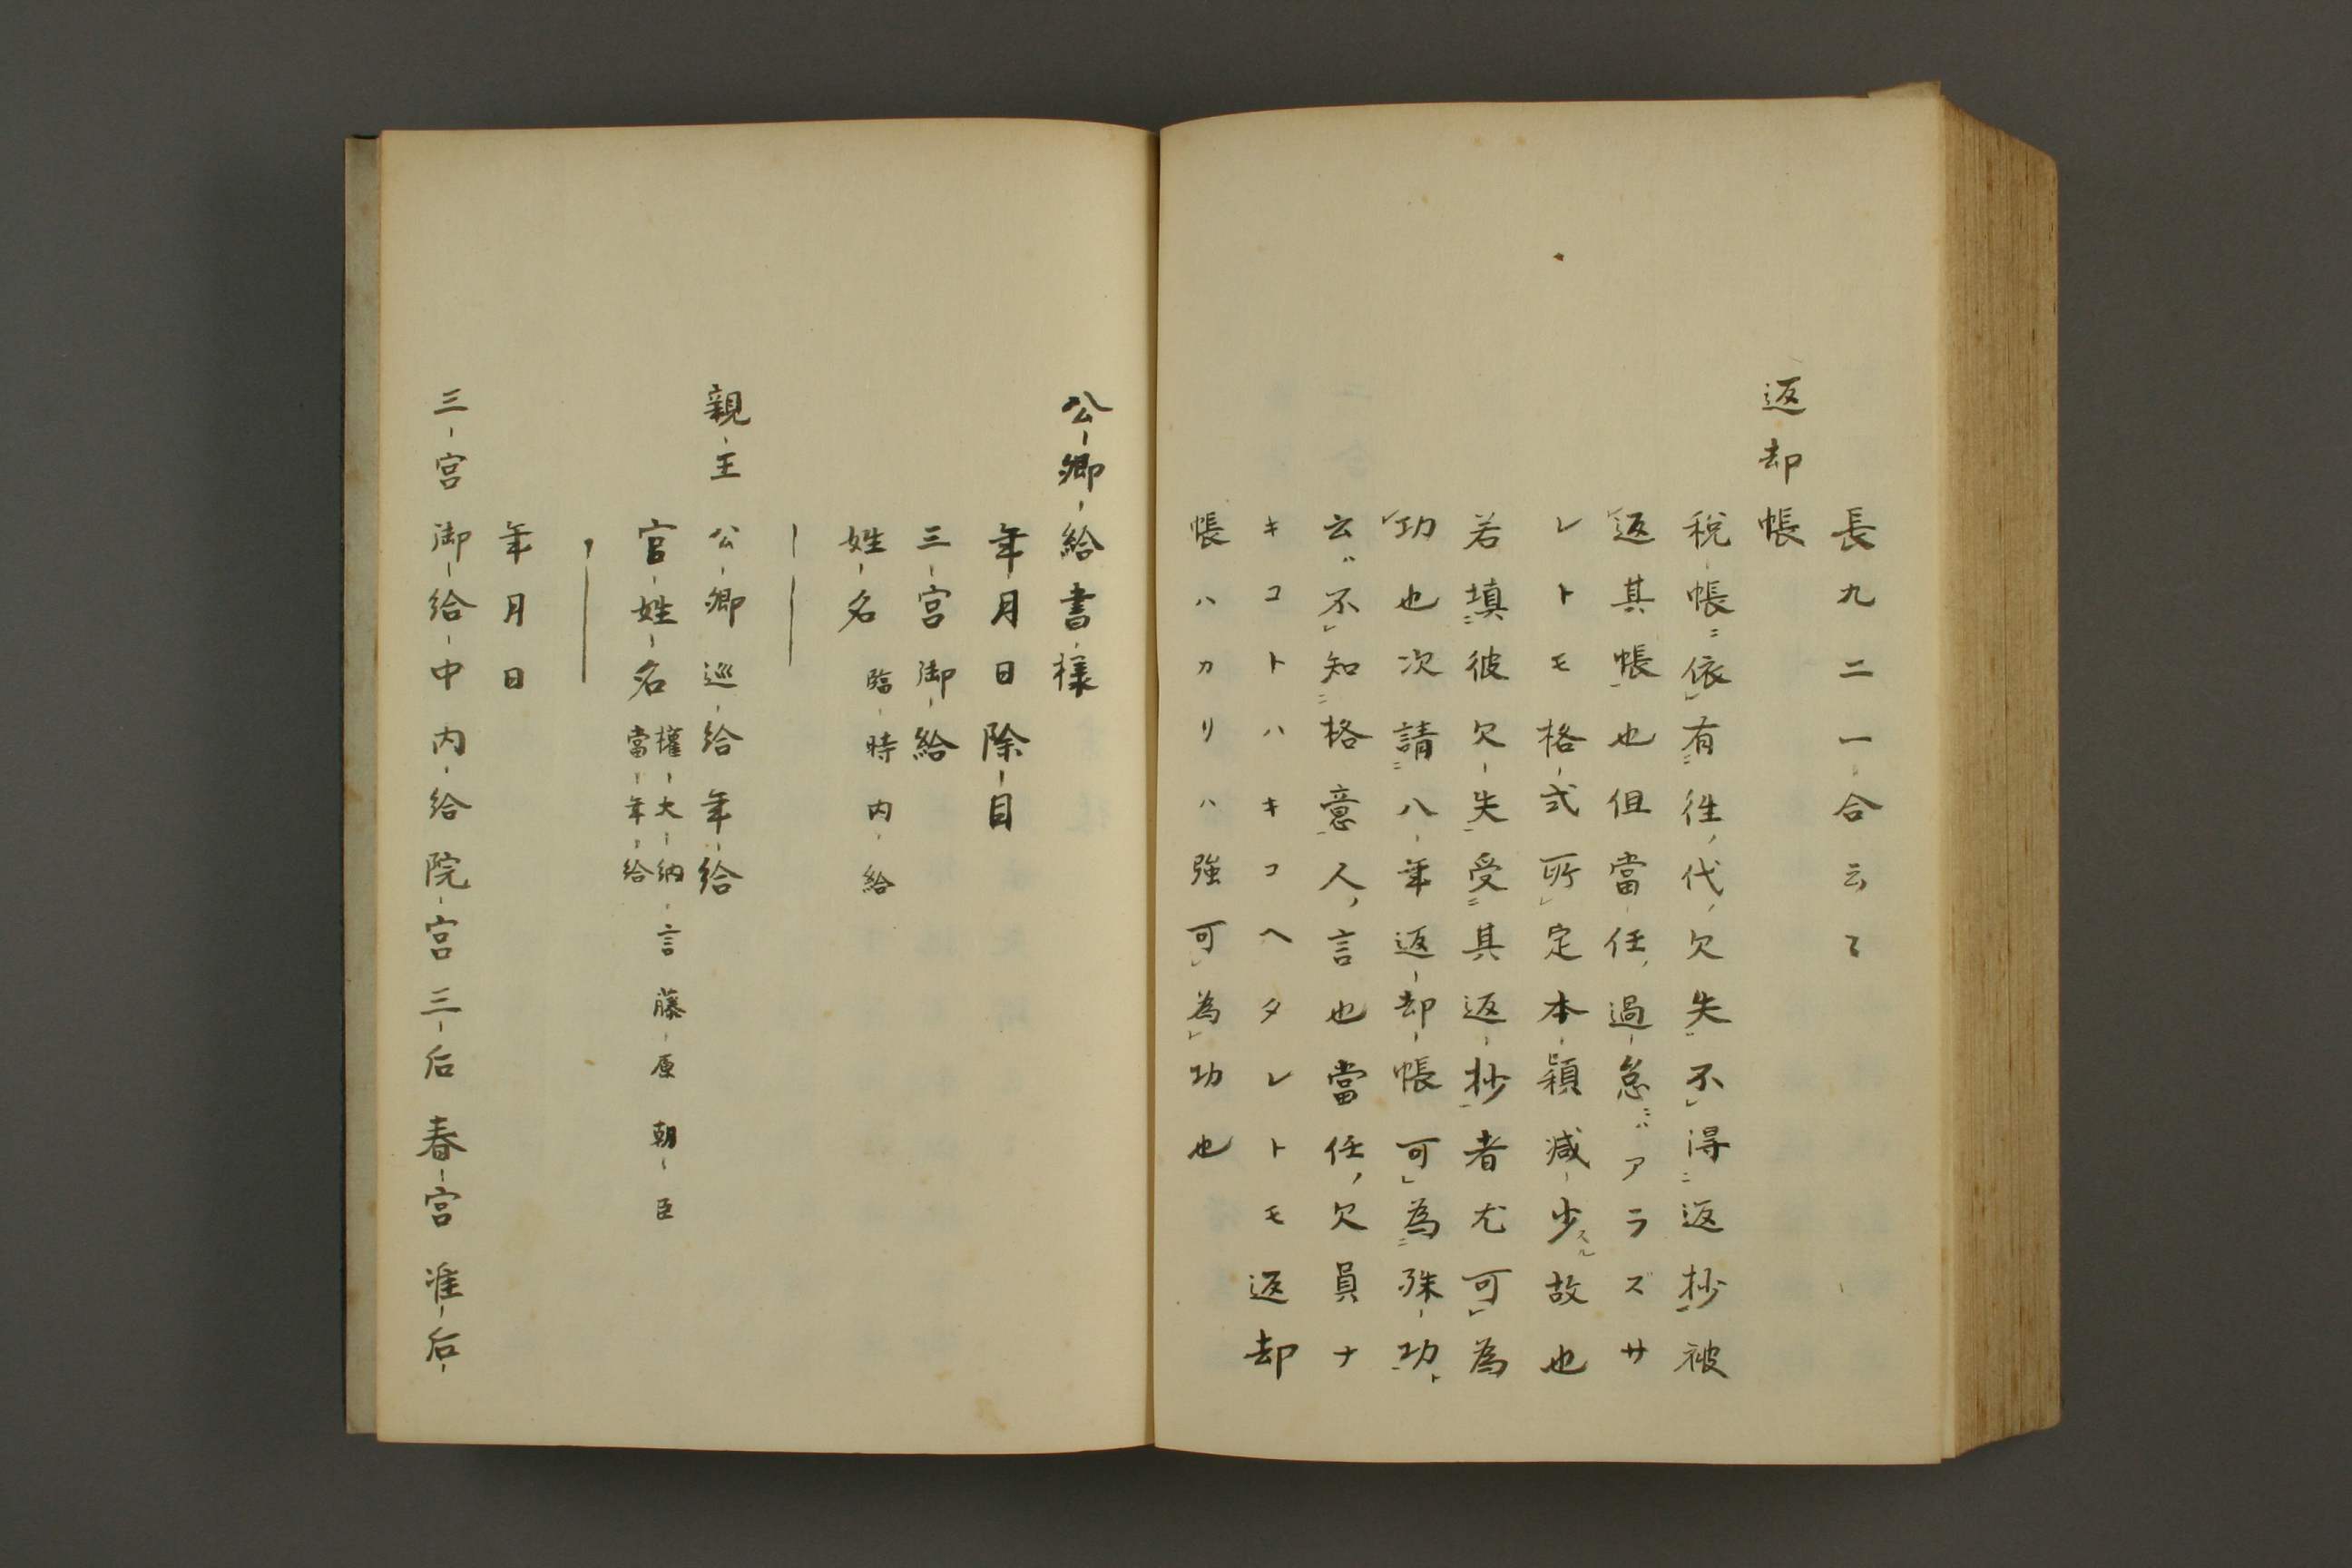 長九二一合云〻
返却帳
税帳ニ依レ有往ノ代ノ欠失不レ得ニ返抄一被
レ返其帳一也但當任ノ過怠ニハアラズサ
レトモ格式所レ定本穎減少スル故也
若填ニ彼欠失一受ニ其返抄一者尤可レ為
レ功也次請ニ八年返却帳一可レ為ニ殊功一ト
云ハ不レ知ニ格意一人ノ言也當任ノ欠員ナ
キコトハキコヘタレトモ返却
帳ハカリハ強可レ為レ功也
公卿給書様
年月日除目
三宮御給
姓名 臨時内給
親王 公卿 巡給 年給
官姓名 權大納言藤原朝臣
當年給
年月日
三宮御給中 内給 院宮 三后 春宮 准后